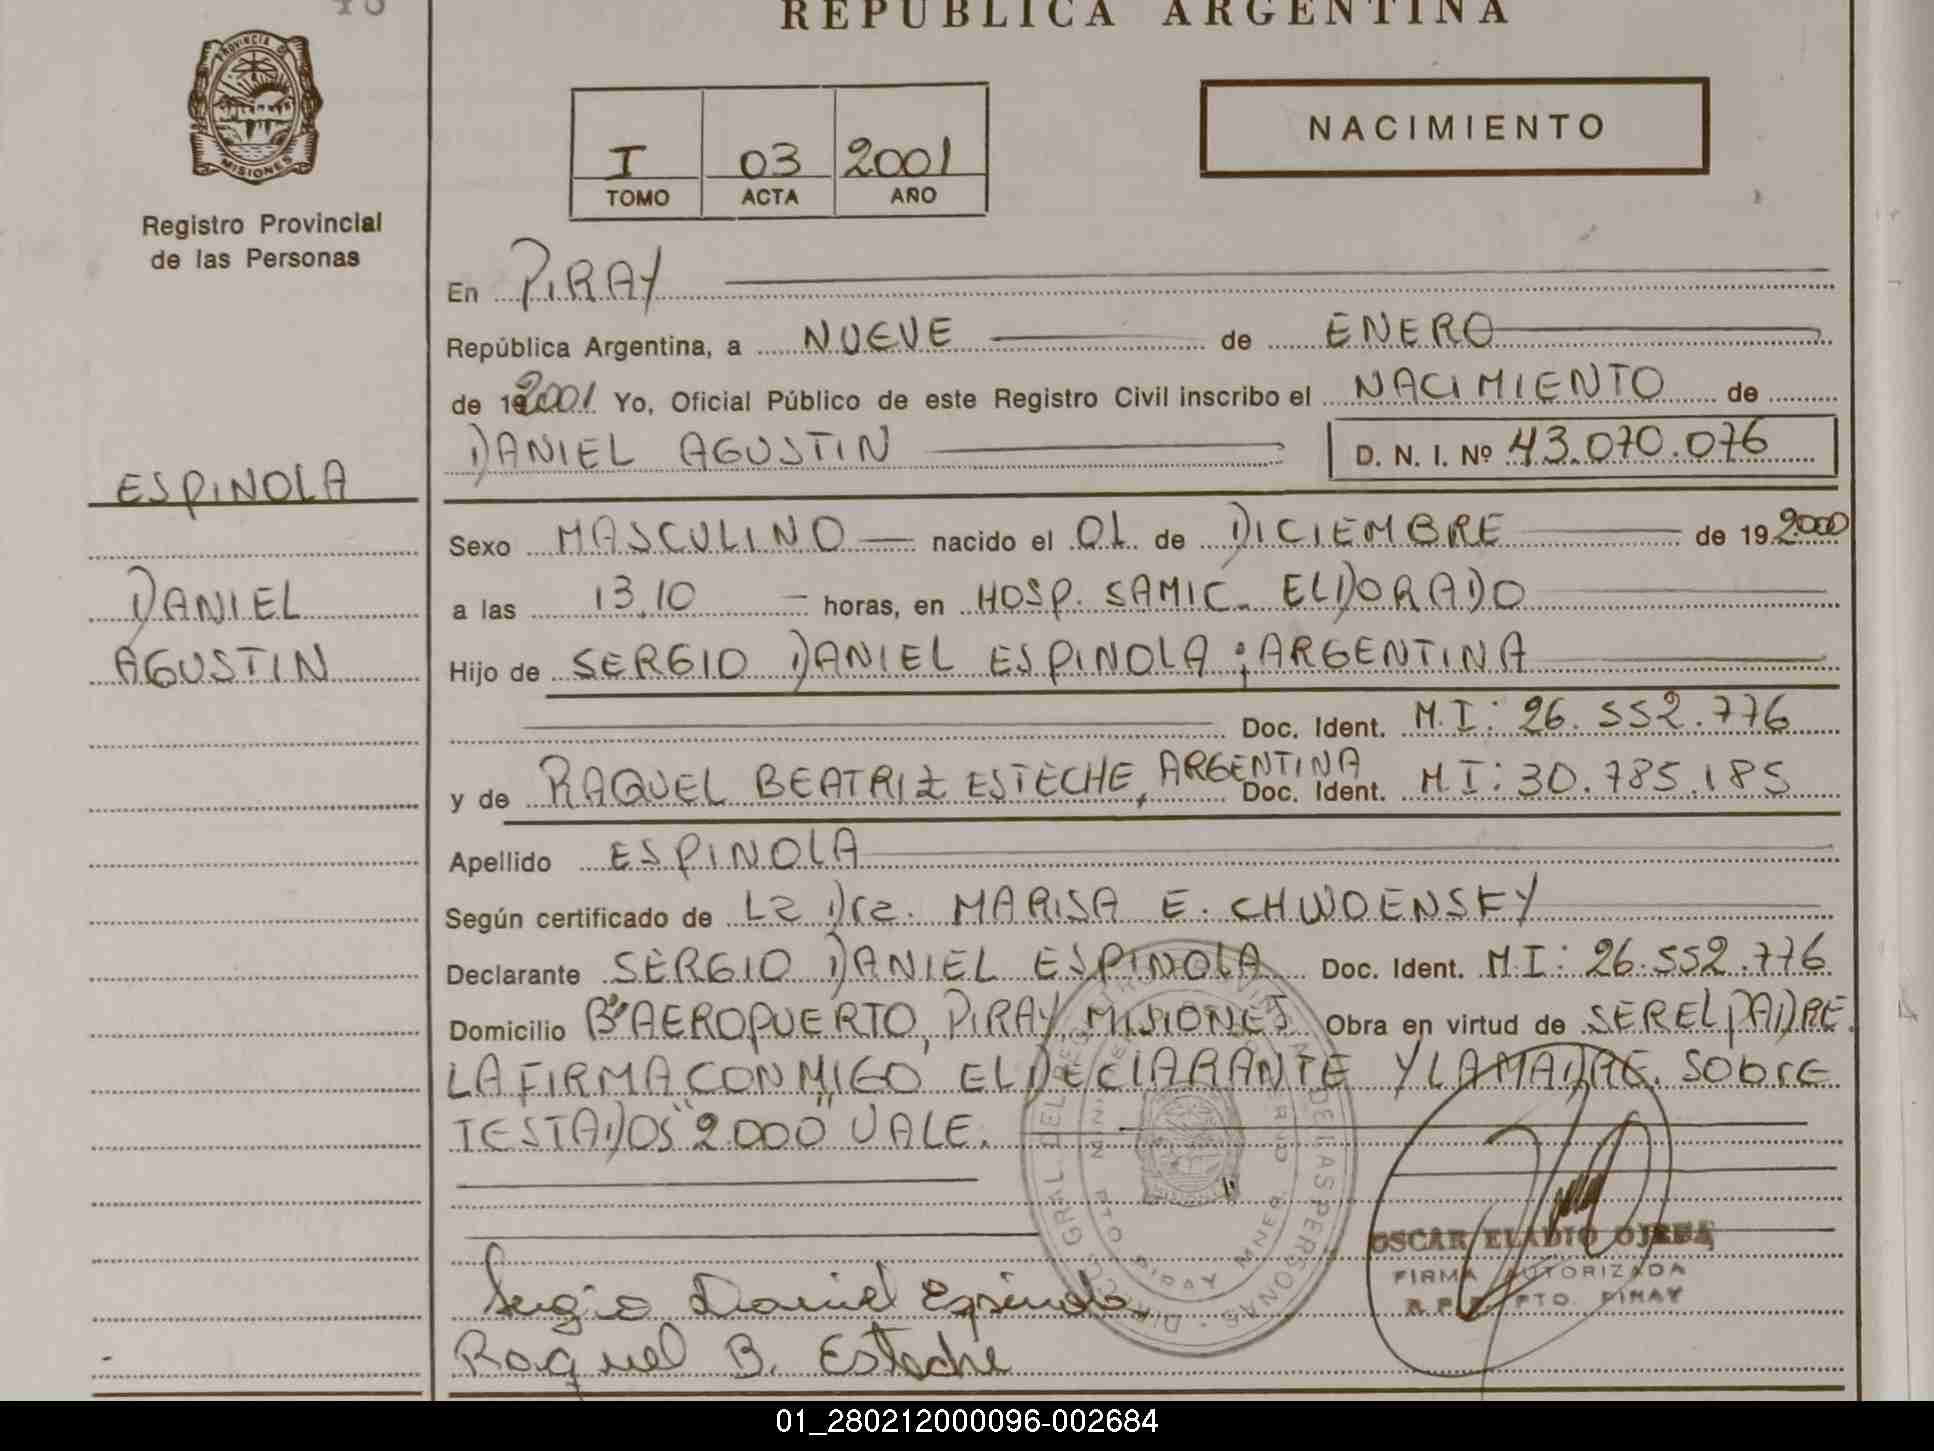 REPUBLICA ARGENTINA
PROVINCIA DE
MISIONES
Registro Provincial
de las Personas
I 03 2001
TOMO ACTA AÑO
NACIMIENTO
En PIRAY
República Argentina, a NUEVE de ENERO
de 2001 Yo, Oficial Público de este Registro Civil inscribo el NACIMIENTO de
DANIEL AGUSTIN D. N. I. Nº 43.070.076
ESPINOLA
DANIEL
AGUSTIN
Sexo MASCULINO nacido el 01 de DICIEMBRE de 19 2000
a las 13.10 horas, en HOSP. SAMIC. ELDORADO
Hijo de SERGIO DANIEL ESPINOLA; ARGENTINA
Doc. Ident. M.I: 26.552.776
y de RAQUEL BEATRIZ ESTECHE, ARGENTINA Doc. Ident. MI: 30.785.185
Apellido ESPINOLA
Según certificado de La Dra. MARISA E.
Declarante SERGIO DANIEL ESPINOLA Doc. Ident. MI: 26.552.776
Domicilio Bº AEROPUERTO, PIRAY, MISIONES Obra en virtud de SER EL PADRE.
LA FIRMA CONMIGO EL DECLARANTE Y LA MADRE. SobrE
TESTADOS "2.000" VALE.
OSCAR ELADIO OJEDA
FIRMA AUTORIZADA
PTO. PIRAY
Sergio Daniel Espinola
Raquel B. Esteche
01_280212000096-002684